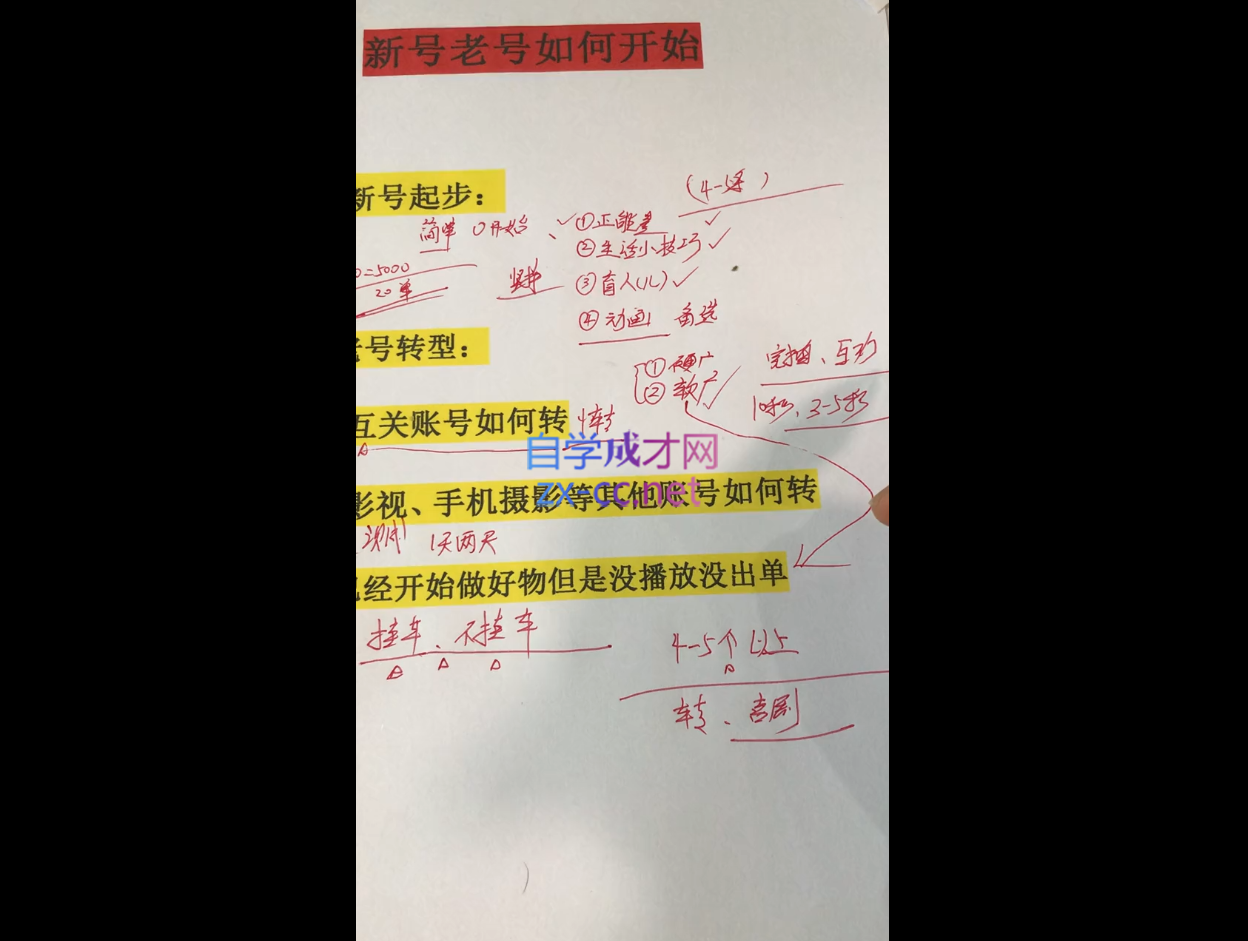 新号老号如何开始
(4-5条)
新号起步：
简单 0开始 ①正能量
②生活小技巧
0=5000
20单
坚持 ③育人(儿)
④动画 备选
号转型：
①硬广
②软广
完播、互动
10秒、3-5秒
互关账号如何转 转
自学成才网
zx-cc.net
影视、手机摄影等其他账号如何转
测试 1天两天
经开始做好物但是没播放没出单
挂车、不挂车
4-5个以上
转、喜剧